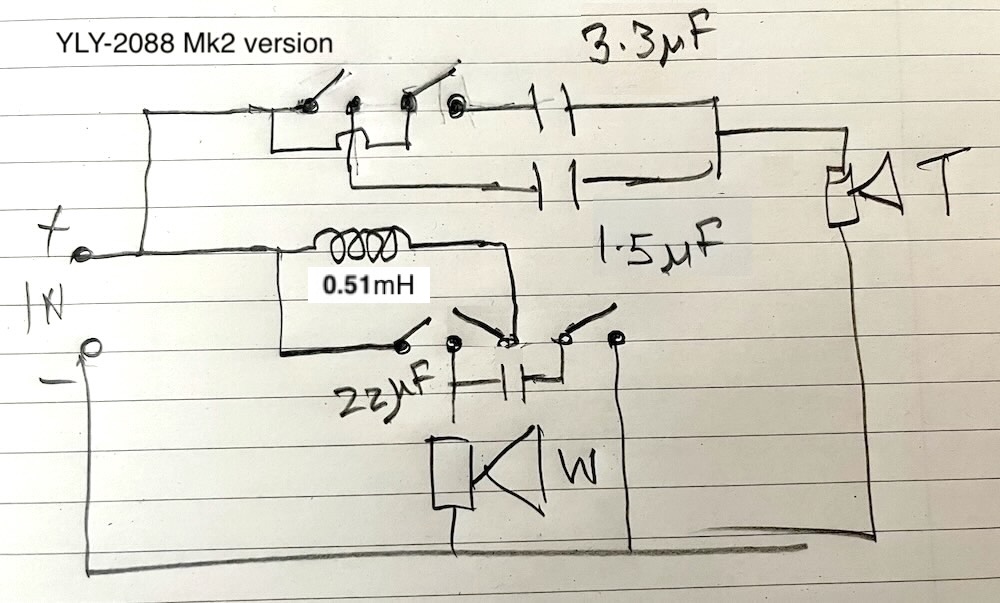 YLY-2088 Mk2 version
3.3µF
T
+
1.5µF
0.51mH
IN
22µF
-
W